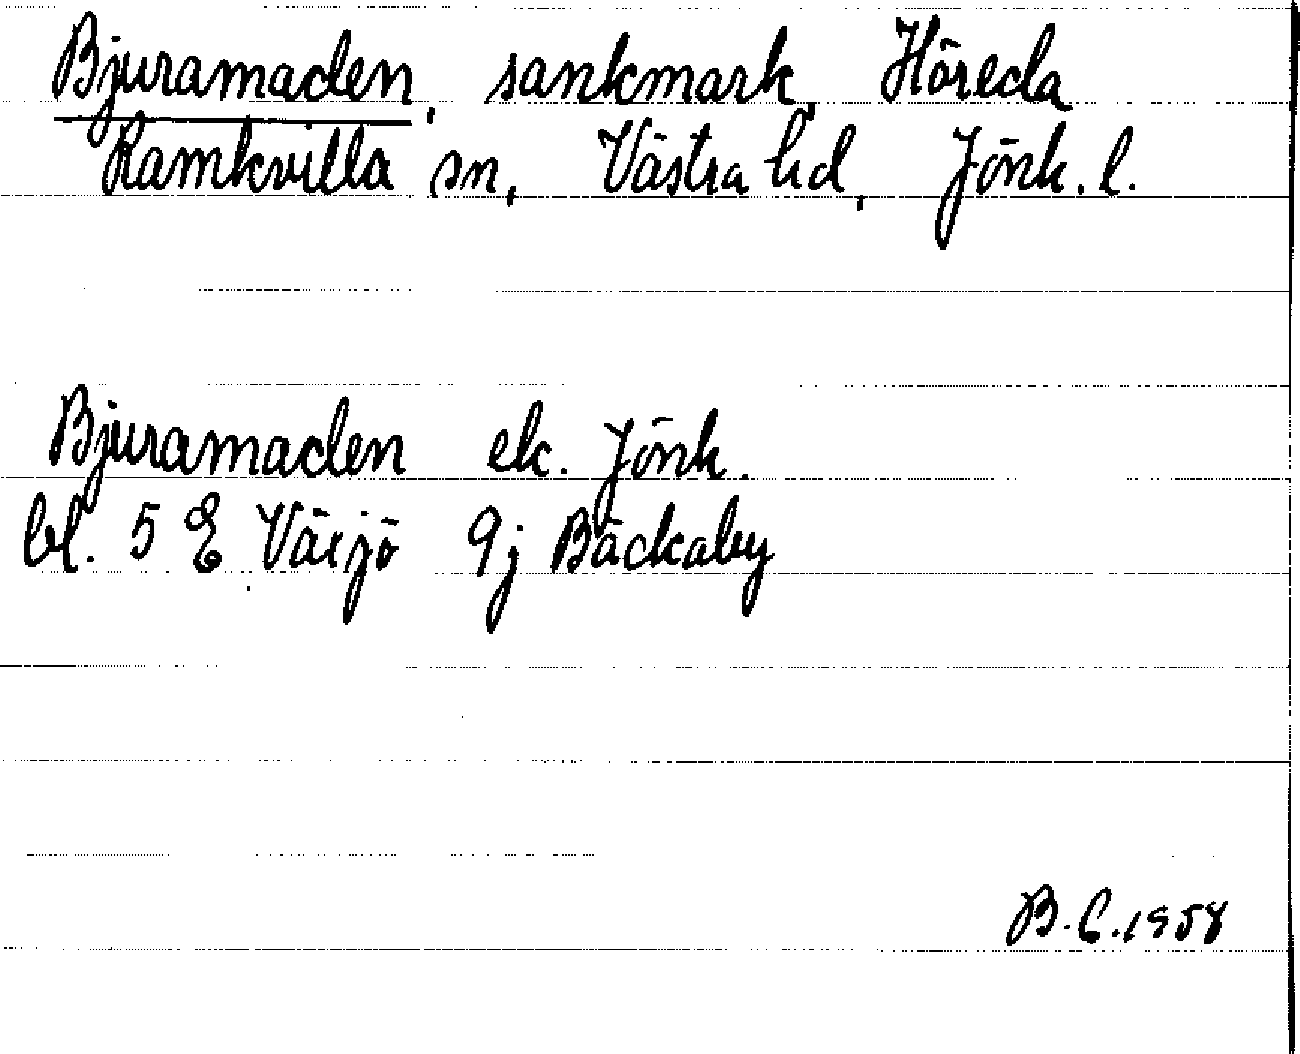 Bjuramaden, sankmark, Höreda
Ramkvilla sn, Västra hd, Jönk. l.
Bjuramaden ek. Jönk.
bl. 5 E Växjö 9j Bäckaby
B. C. 1958